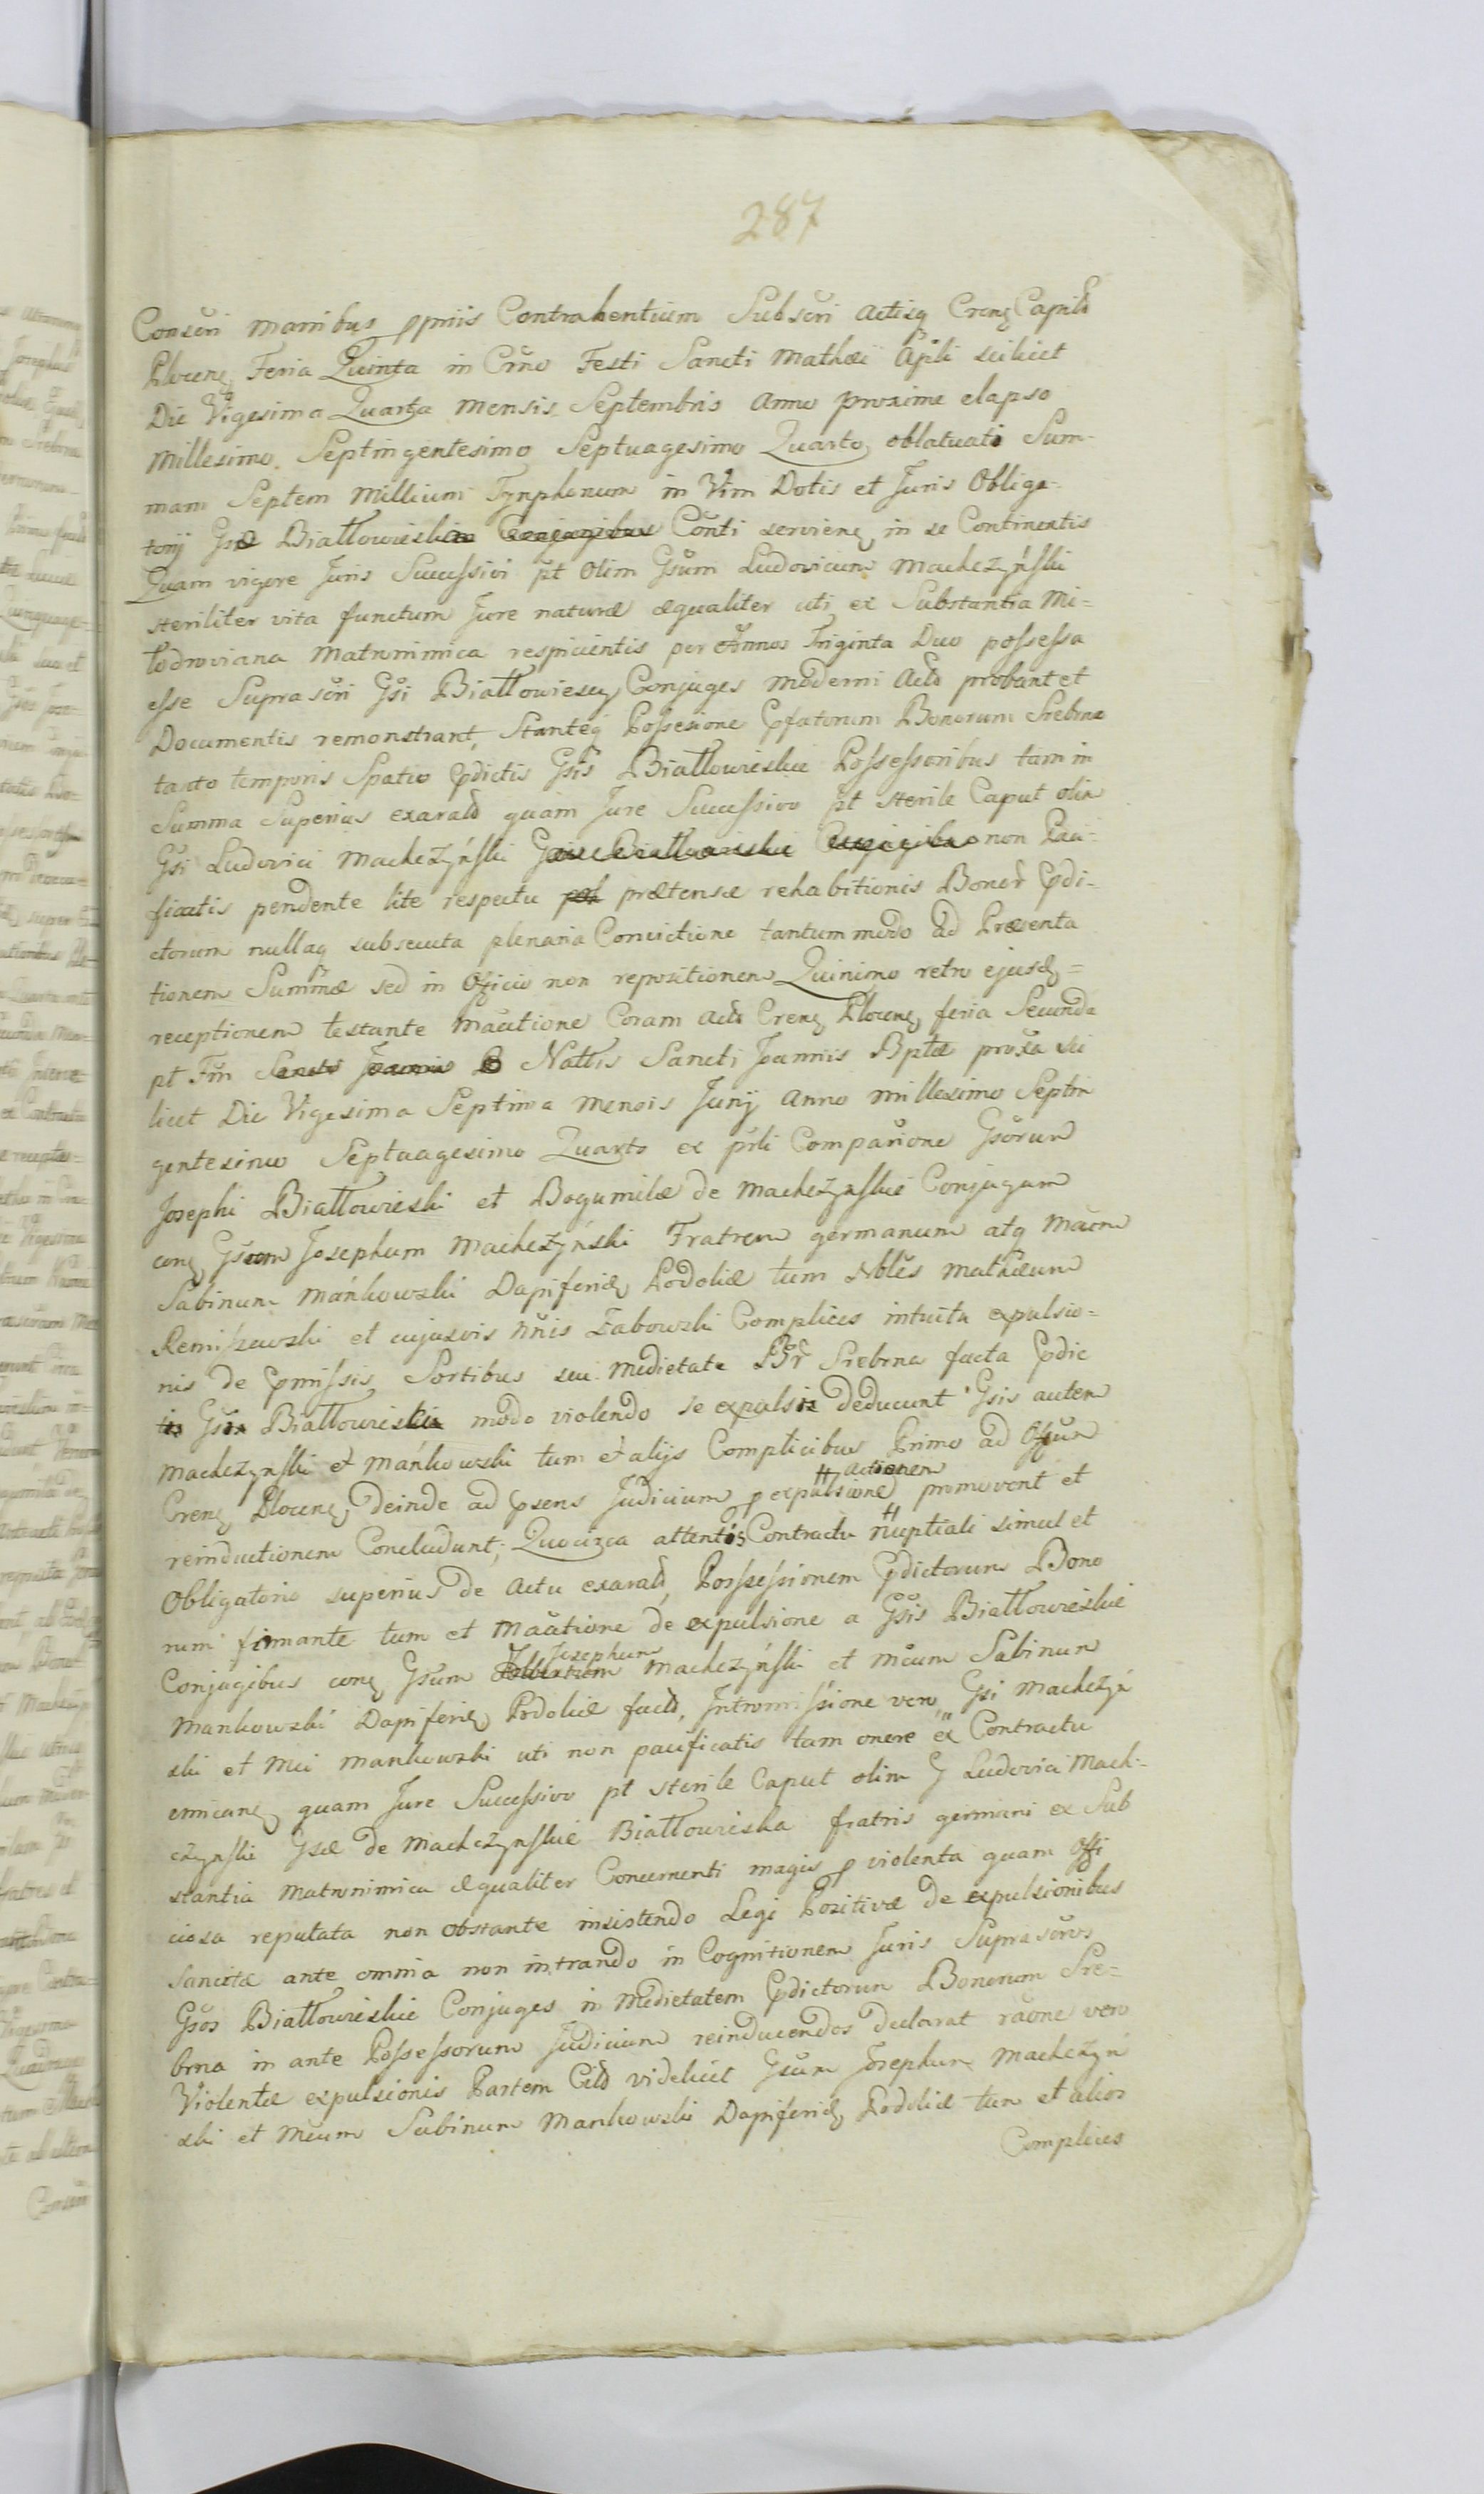 287
Conscri manibus ppriis Contrahentium Subscri actisq Crenẹ Capitłb
Plocenẹ Feria Quinta in Crno Festi Sancti Mathæi Apli scilicet
Die Vigesima Quarta Mensis Septembris Anno proxime elapso
Millesimo Septingentesimo Septuagesimo Quarto oblatuati Sum-
mam Septem Millium Tynphonum in Vim Dotis et Juris Obliga-
torij Gsæ Białłowieskie Conjugibus Conti servienẹ in se Continentis
Quam vigore Juris Successivi pt Olim Gsum Ludovicum Machczyński
steriliter vita functum Jure naturæ æqualiter uti ex Substantia Mi-
todroviana Matrinimica respicientis per Annos Triginta Duo possessa
esse Suprascri Gsi Białłowiescy Conjuges moderni Actis probant et
Documentis remonstrant, Stanteq Possesione Pfatorum Bonorum Srebrna
tanto temporis Spatio Pdictis Gsis Białłowieskie Possessoribus tam in
Summa Superius exarata quam Jure Successivo pt sterile Caput olim
Gsi Ludovici Machczyński non Paci-
ficatis pendente lite respectu prætensæ rehabitionis Bonor Pdi-
ctorum nullaq subsecuta plenaria Convictione tantummodo ad Præsenta
tionem Summæ sed in Officio non repositionem Quinimo retro ejusdẹ=
receptionem testante Mactione Coram Actis Crenẹ Plocenẹ feria Secunda
pt Fm Sancti Joannis B Nattis Sancti Joannis Bptæ proxa sci
licet Die Vigesima Septima Mensis Junij Anno Millesimo Septin
gentesimo Septuagesimo Quarto ex prli Comparione Gsorum
Josephi Białłowieski et Bogumilæ de Machczyńskie Conjugum
conẹ Gsum Josephum Machczyński Fratrem germanum atq Macm
Sabinum Mańkowski Dapiferidẹ Podoliæ tum Nobles Mathæum
Remiszewski et cujusvis nnis Zabowski Complices intuitu expulsio=
nis de Pmissis Sortibus seu Medietate Br Srebrna facta Pdic
tis Gsis Białłowieskie modo violendo se expulsis deducunt Gsis autem
Machczyński et Mańkowski tum et alijs Complicibus Primo ad Offum
Crenẹ Plocenẹ, deinde ad Psens Judicium p expulsione # actionem promovent et
reinductionem Concludunt; Quocirca attentis Contractu nuptiali simul et
Obligatorio superius de Actu exarato, Possessionem Pdictorum Bono
rum firmante tum et Mactione de expulsione a Gsis Białłowieskie
Conjugibus conẹ Gsum Josephum Machczyński et Mcum Sabinum
Mankowski Dapiferidẹ Podoliæ facta, Intromissione vero Gsi Machczyń
ski et Mci Mankowski uti non pacificatis tam onere ex Contractu
emicanẹ quam Jure Successivo pt sterile Caput olim G Ludovici Mach-
czyński Gsæ de Machczyńskie Białłowieska fratris germani ex Sub
stantia Matrinimica æqualiter Concernenti magis p violenta quam Offi
ciosa reputata non obstante insistendo Legi Pozitivæ de expulsionibus
Sancitæ ante omnia non intrando in Cognitionem Juris Suprascros
Gsos Białłowieskie Conjuges in Medietatem Pdictorum Bonorum Sre=
brna in ante Possessorum Judicium reinducendos declarat raone vero
Violentæ expulsionis Partem Cita videlicet Gsum Josephum Machczyń
ski et Mcum Sabinum Mankowski Dapiferidẹ Podoliæ tum et alios
Complices